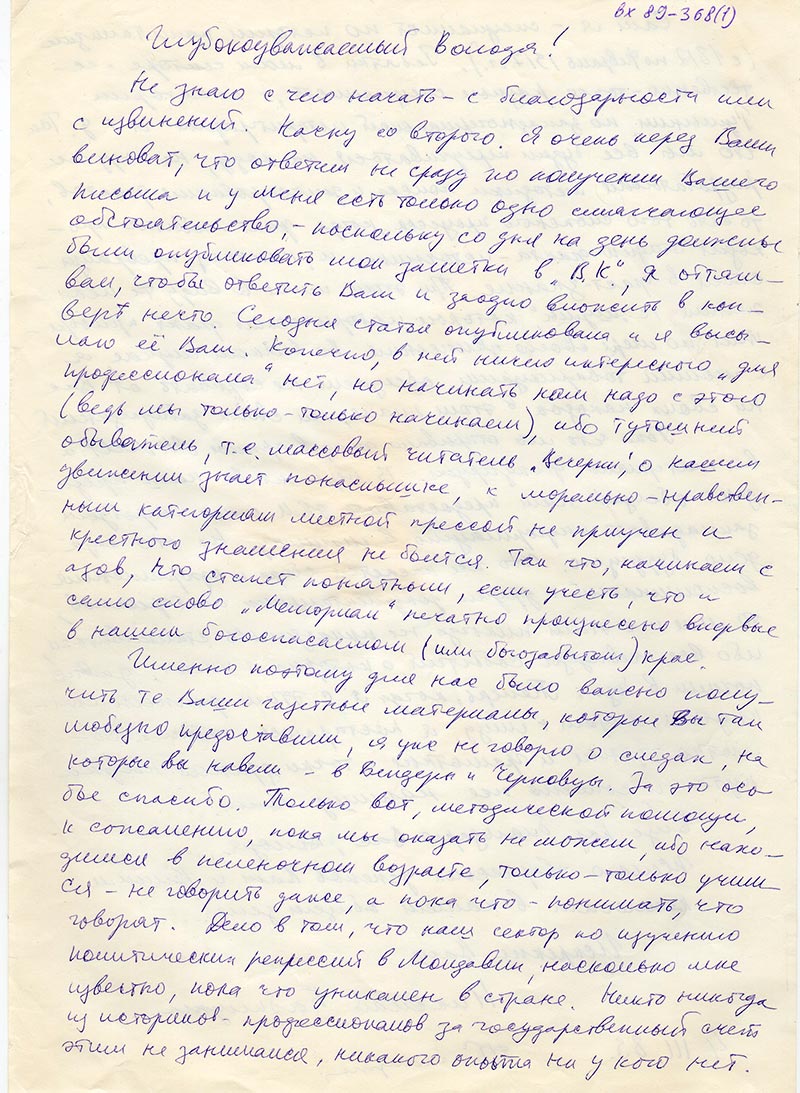 вх 89-368(1)
Глубокоуважаемый Володя!
Не знаю с чего начать – с благодарности или
с извинений. Начну со второго. Я очень перед Вами
виноват, что ответил не сразу по получении Вашего
письма и у меня есть только одно смягчающее
обстоятельство, – поскольку со дня на день должны
были опубликовать мои заметки в „В.К.“, я оттяги-
вал, чтобы ответить Вам и заодно вложить в кон-
верт нечто. Сегодня статья опубликована и я высы-
лаю её Вам. Конечно, в ней ничего интересного „для
профессионала“ нет, но начинать нам надо с этого
(ведь мы только-только начинаем), ибо тутошний
обыватель, т.е. массовый читатель „Вечерки“, о нашем
движении знает понаслышке, к морально-нравствен-
ным категориям местной прессой не приучен и
крестного знамения не боится. Так что, начинаем с
азов, что станет понятным, если учесть, что и
само слово „Мемориал“ печатно произнесено впервые
в нашем богоспасаемом (или богозабытом) крае.
Именно поэтому для нас было важно полу-
чить те Ваши газетные материалы, которые Вы так
любезно предоставили, я уже не говорю о следах, на
которые вы навели – в Бендеры и Черновцы. За это осо-
бое спасибо. Только вот, методической помощи,
к сожалению, пока мы оказать не можем, ибо нахо-
димся в пеленочном возрасте, только-только учим-
ся – не говорить даже, а пока что – понимать, что
говорят. Дело в том, что наш сектор по изучению
политических репрессий в Молдавии, насколько мне
известно, пока что уникален в стране. Никто никогда
из историков-профессионалов за государственный счет
этим не занимался, никакого опыта ни у кого нет.